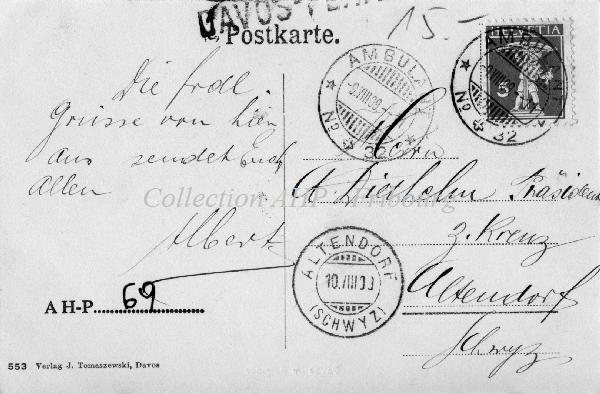 DAVOS-
15.-
Postkarte.
HELVETIA
5
AMBULANT
No 32
AMBULANT
No 32
Die frdl.
Grüsse von hier
aus sendet Euch
allen
Albert
Herrn
A Diethelm Präsident
z. Kreuz
Altendorf
Schwyz
Collection AHP Fribourg
ALTENDORF
10.VIII.09
(SCHWYZ)
AH-P 69
553 Verlag J. Tomaszewski, Davos